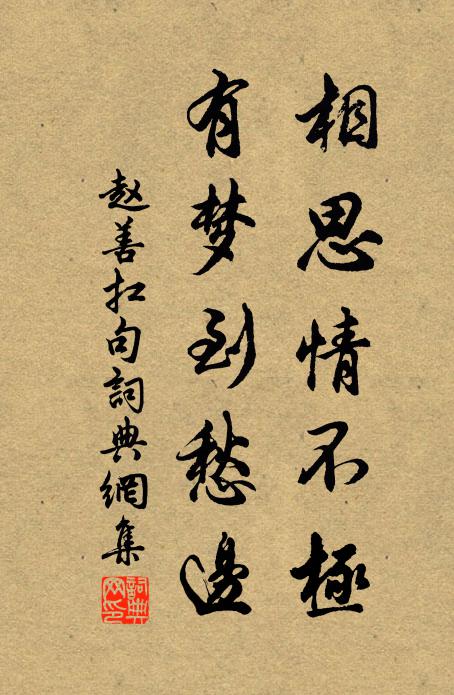 相思情不極
有梦到愁邊
赵善扛句詞典網集
詞典网印